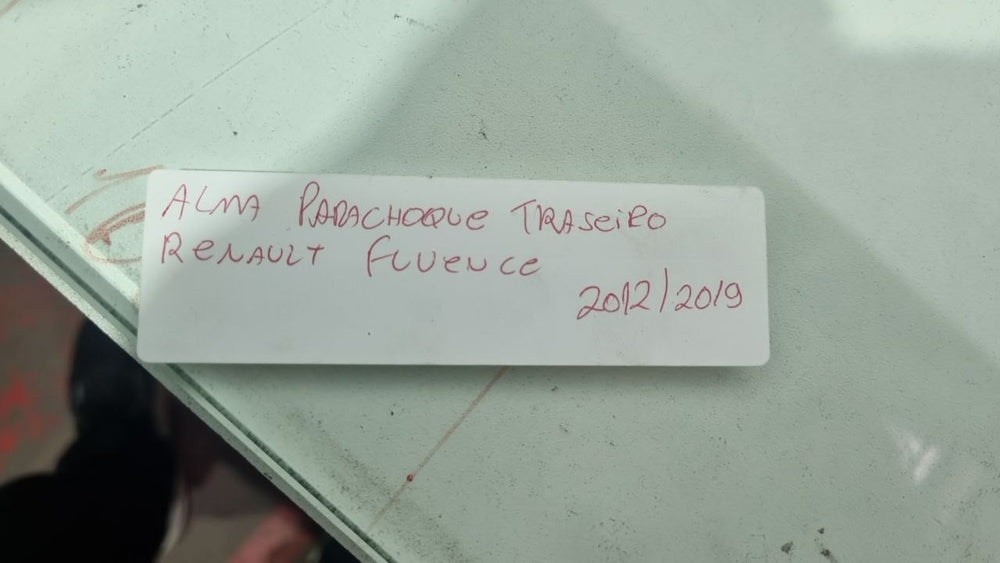 ALMA PARACHOQUE TRASEIRO
RENAULT FLUENCE
2012/2019